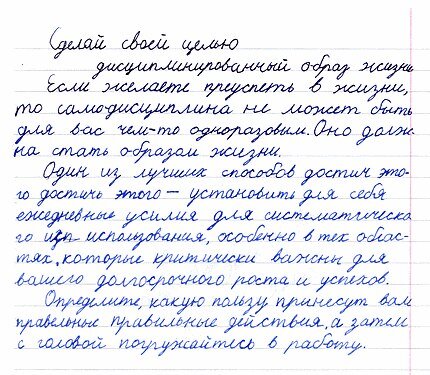 Сделай своей целью
дисциплинированный образ жизни
Если желаете преуспеть в жизни,
то самодисциплина не может быть
для вас чем-то одноразовым. Оно долж
на стать образом жизни.
Один из лучших способов достич это-
го достичь этого – установить для себя
ежедневные усилия для систематическа
го исп использования, особенно в тех облас-
тях, которые критически важны для
вашего долгосрочного роста и успехов.
Определите, какую пользу принесут вам
правельные правильные действия, а затем
с головой погружайтесь в работу.